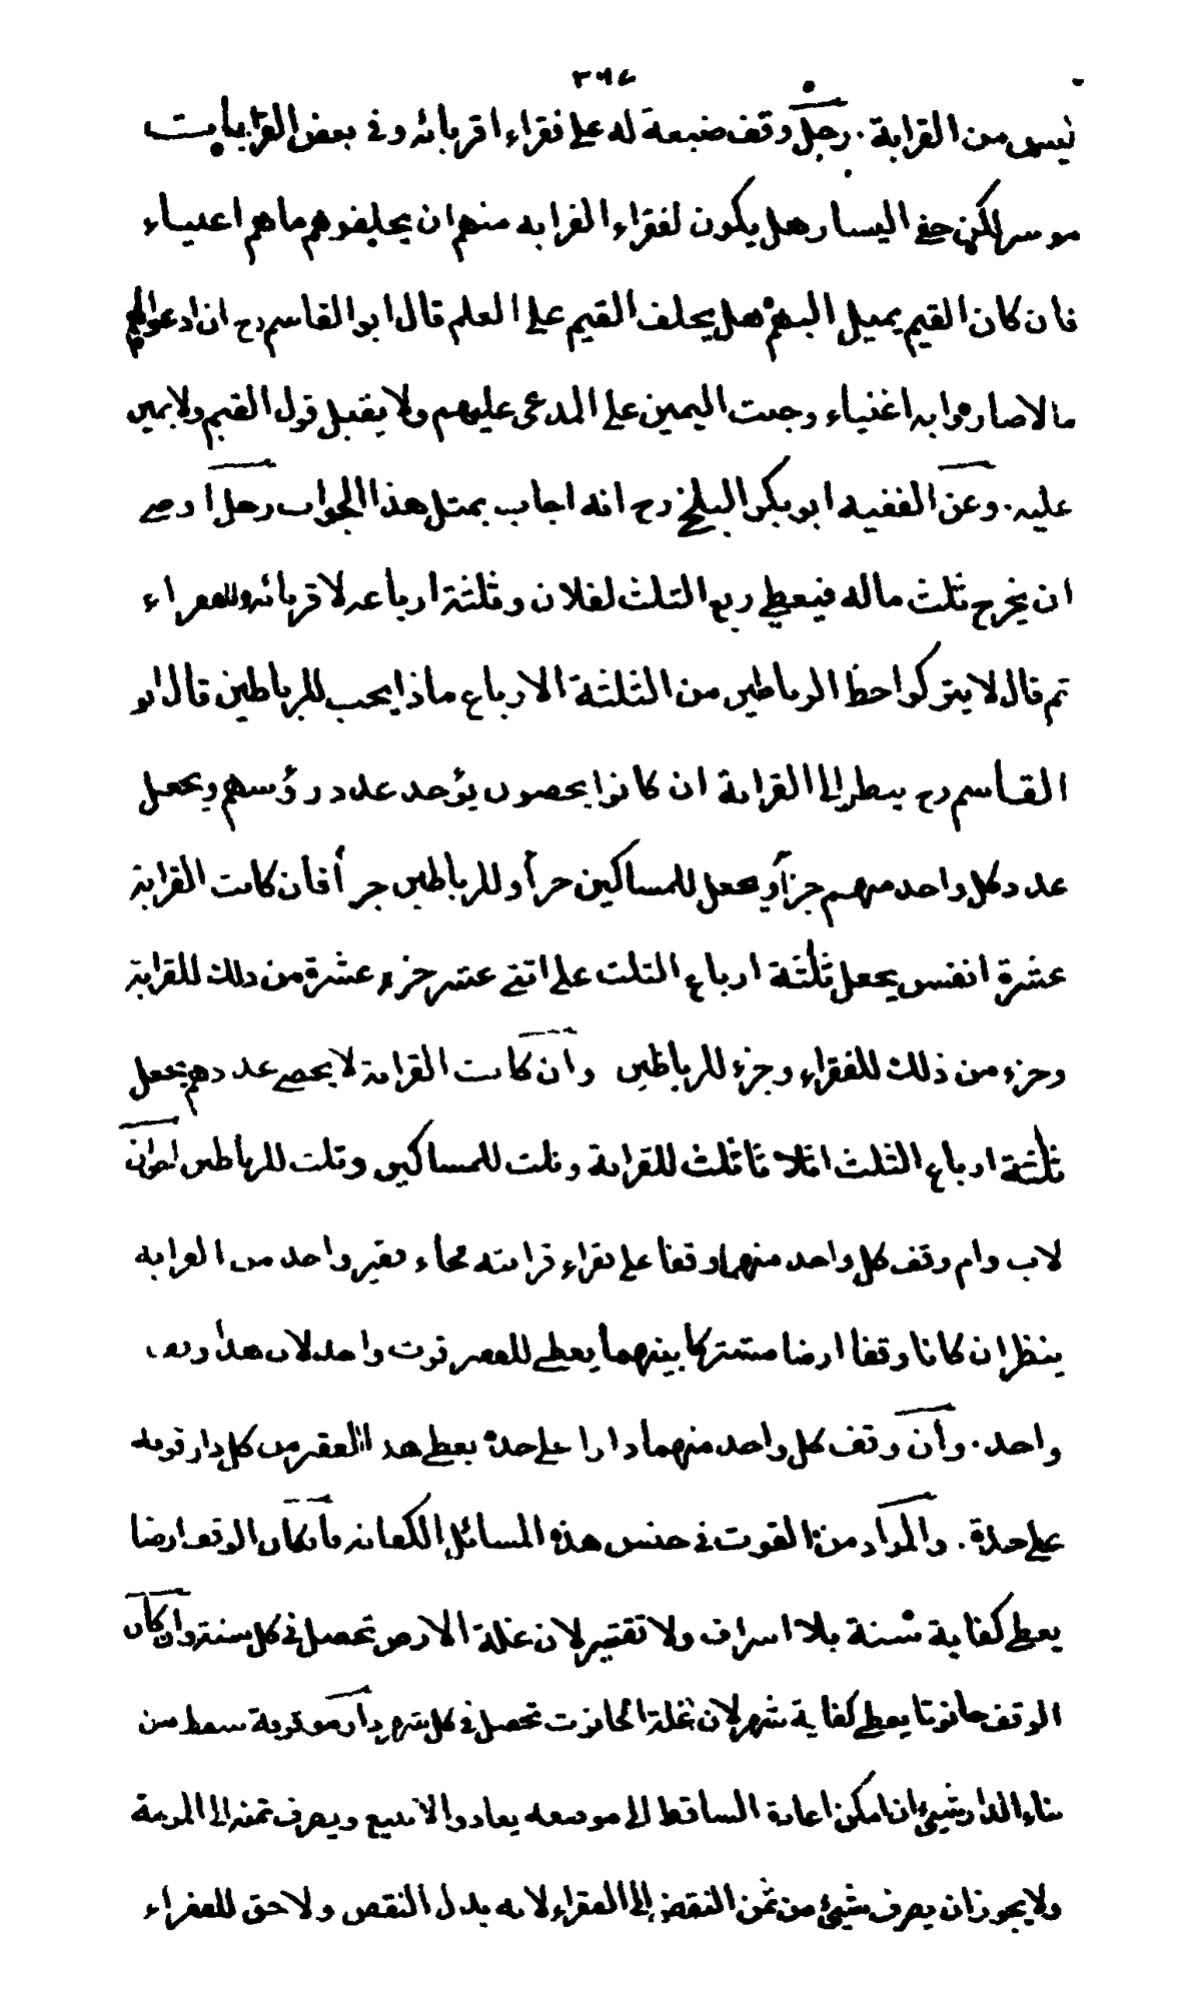 ٣٦٧
ليس من القرابة . رجل وقف ضيعة له على فقراء اقربائه وفي بعض القرابات
موسر لكن خفي اليسار هل يكون لفقراء القرابة منهم ان يحلفوهم ما هم اغنياء
فان كان القيم يميل اليهم هل يحلف القيم على العلم قال ابو القاسم رح ان ادعوا لهم
مالا صاروا به اغنياء وجبت اليمين على المدعى عليهم ولا يقبل قول القيم ولا يمين
عليه . وعن الفقيه ابو بكر البلخي رح انه اجاب بمثل هذا الجواب رجل اوصى
ان يخرج ثلث ماله فيعطى ربع الثلث لفلان وثلثة ارباعه لاقربائه وللفقراء
ثم قال لا يتركوا حظ الرباطين من الثلثة الارباع ماذا يجب للرباطين قال ابو
القاسم رح ينظر الى القرابة ان كانوا يحصون يؤخذ عدد رؤسهم ويجعل
عدد كل واحد منهم جزأ ويجعل للمساكين جزأ وللرباطين جزأ فان كانت القرابة
عشرة انفس يجعل ثلثة ارباع الثلث على اثنى عشر جزء عشرة من ذلك للقرابة
وجزء من ذلك للفقراء وجزء للرباطين وان كانت القرابة لا يحصى عددهم يجعل
ثلثة ارباع الثلث اثلاثا ثلث للقرابة وثلث للمساكين وثلث للرباطين اخوان
لاب وام وقف كل واحد منهما وقفا على فقراء قرابته فجاء فقير واحد من القرابة
ينظر ان كانا وقفا ارضا مشتركا بينهما يعطى للفقير قوت واحد لان هذا وقف
واحد . وان وقف كل واحد منهما دارا على حدة يعطى هذا الفقير من كل دار قوته
على حدة . والمراد من القوت في جنس هذه المسائل الكفاية فان كان الوقف ارضا
يعطى كفاية سنة بلا اسراف ولا تقتير لان غلة الارض تحصل في كل سنة وان كان
الوقف حانوتا يعطى كفاية شهر لان غلة الحانوت تحصل في كل شهر دار موقوفة سقط من
بناء الدار شيئ ان امكن اعادة الساقط الى موضعه يعاد والا يبيع ويصرف ثمنه الى المرمة
ولا يجوز ان يصرف شيئ من ثمن النقض الى الفقراء لانه بدل النقض ولا حق للفقراء